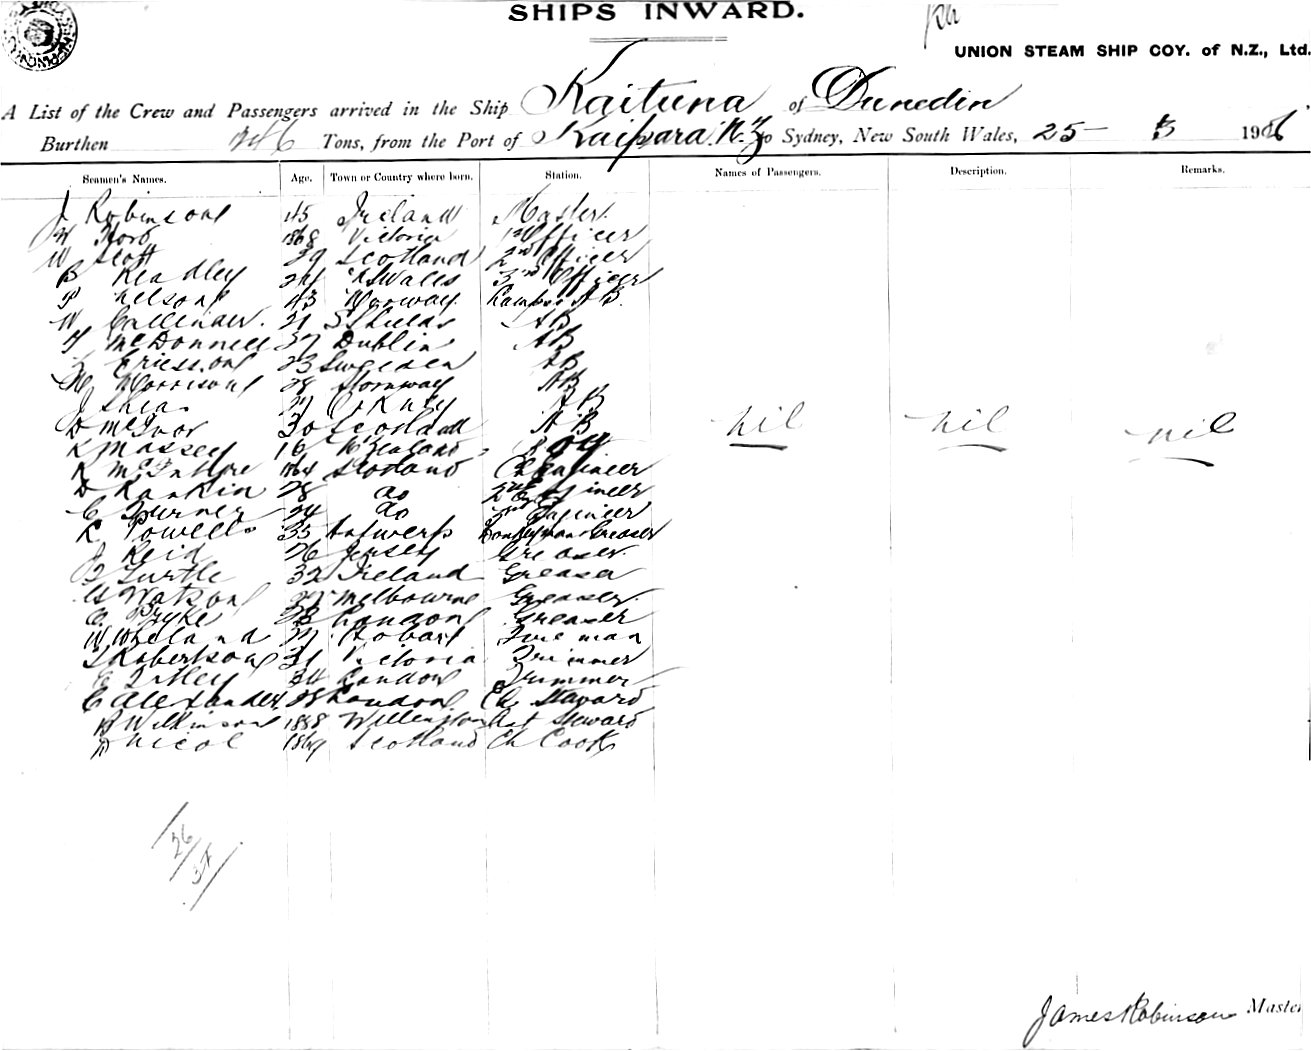 SHIPS INWARD.
UNION STEAM SHIP COY. of N.Z., Ltd.
A List of the Crew and Passengers arrived in the Ship Kaituna of Dunedin
Burthen Tons, from the Port of Kaipara N.Z. to Sydney, New South Wales, 25 190
Seamen's Names. Age. Town or Country where born. Station. Names of Passengers. Description. Remarks.
J Robinson 45 Ireland Master
Ford 1868 Victoria 1st Officer
W Scott 29 Scotland 2nd Officer
B Readley 24 NSWales 3rd Officer
P Nelson 43 Norway Lamps A B.
W Callender. 21 S Shields A B
McDonnell 27 Dublin A B
Ericsson 23 Sweden A B
Morrison 28 Stornway A B
J Shea Orkney A B
D McIvor 30 Scotland A B
K Massey 16 N Zealand Boy
nil nil nil
R McIntyre 1864 Scotland Ch Engineer
D Rankin 28 do 2nd Engineer
C Turner 24 do 3rd Engineer
R Powell 35 Antwerp Donkeyman Greaser
J Reid 26 Jersey Greaser
Turtle 32 Ireland Greaser
Watson 27 Melbourne Greaser
C Pryke 28 London Greaser
W Wheland 27 Hobart Fireman
Robertson 31 Victoria Trimmer
34 London Trimmer
C Alexander 28 London Ch Steward
B Wilkinson 1888 Wellington Ast Steward
D Nicol 1869 Scotland Ch Cook
26
James Robinson Master